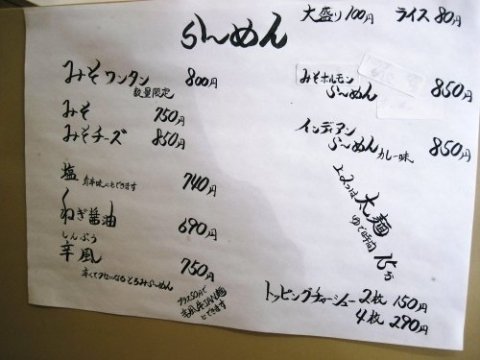 らーめん
大盛り100円 ライス80円
みそワンタン 800円
数量限定
みそ 750円
みそチーズ 850円
塩 740円
ねぎ醤油 690円
しんぷう
辛風 750円
辛くてクセになるとろみらーめん
プラス50円で
にできます
みそホルモン
らーめん 850円
インディアン
らーめん カレー味 850円
太麺
ゆで時間 15分
トッピングチャーシュー 2枚 150円
4枚 290円